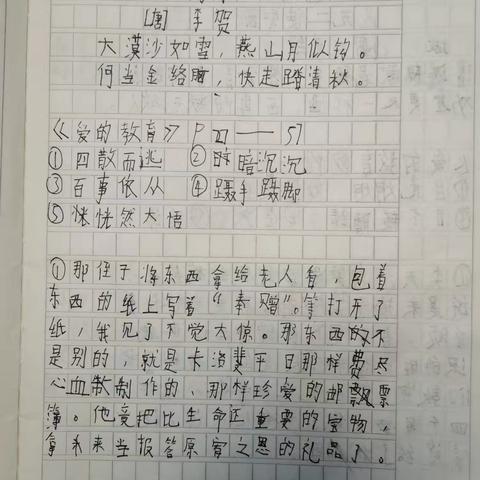 [唐] 李贺
大漠沙如雪，燕山月似钩。
何当金络脑，快走踏清秋。
《爱的教育》 P27——57
①四散而逃 ②时暗沉沉
③百事依从 ④蹑手蹑脚
⑤恍然大悟
①那侄子将东西拿给老人看，包着
东西的纸上写着“奉赠”。等打开了
纸，我见了不觉大惊。那东西的不
是别的，就是卡洛斐平日那样费尽
心血制作的、那样珍爱的邮票
簿。他竟把比生命还重要的宝物，
拿来当报答原宥之恩的礼品了。